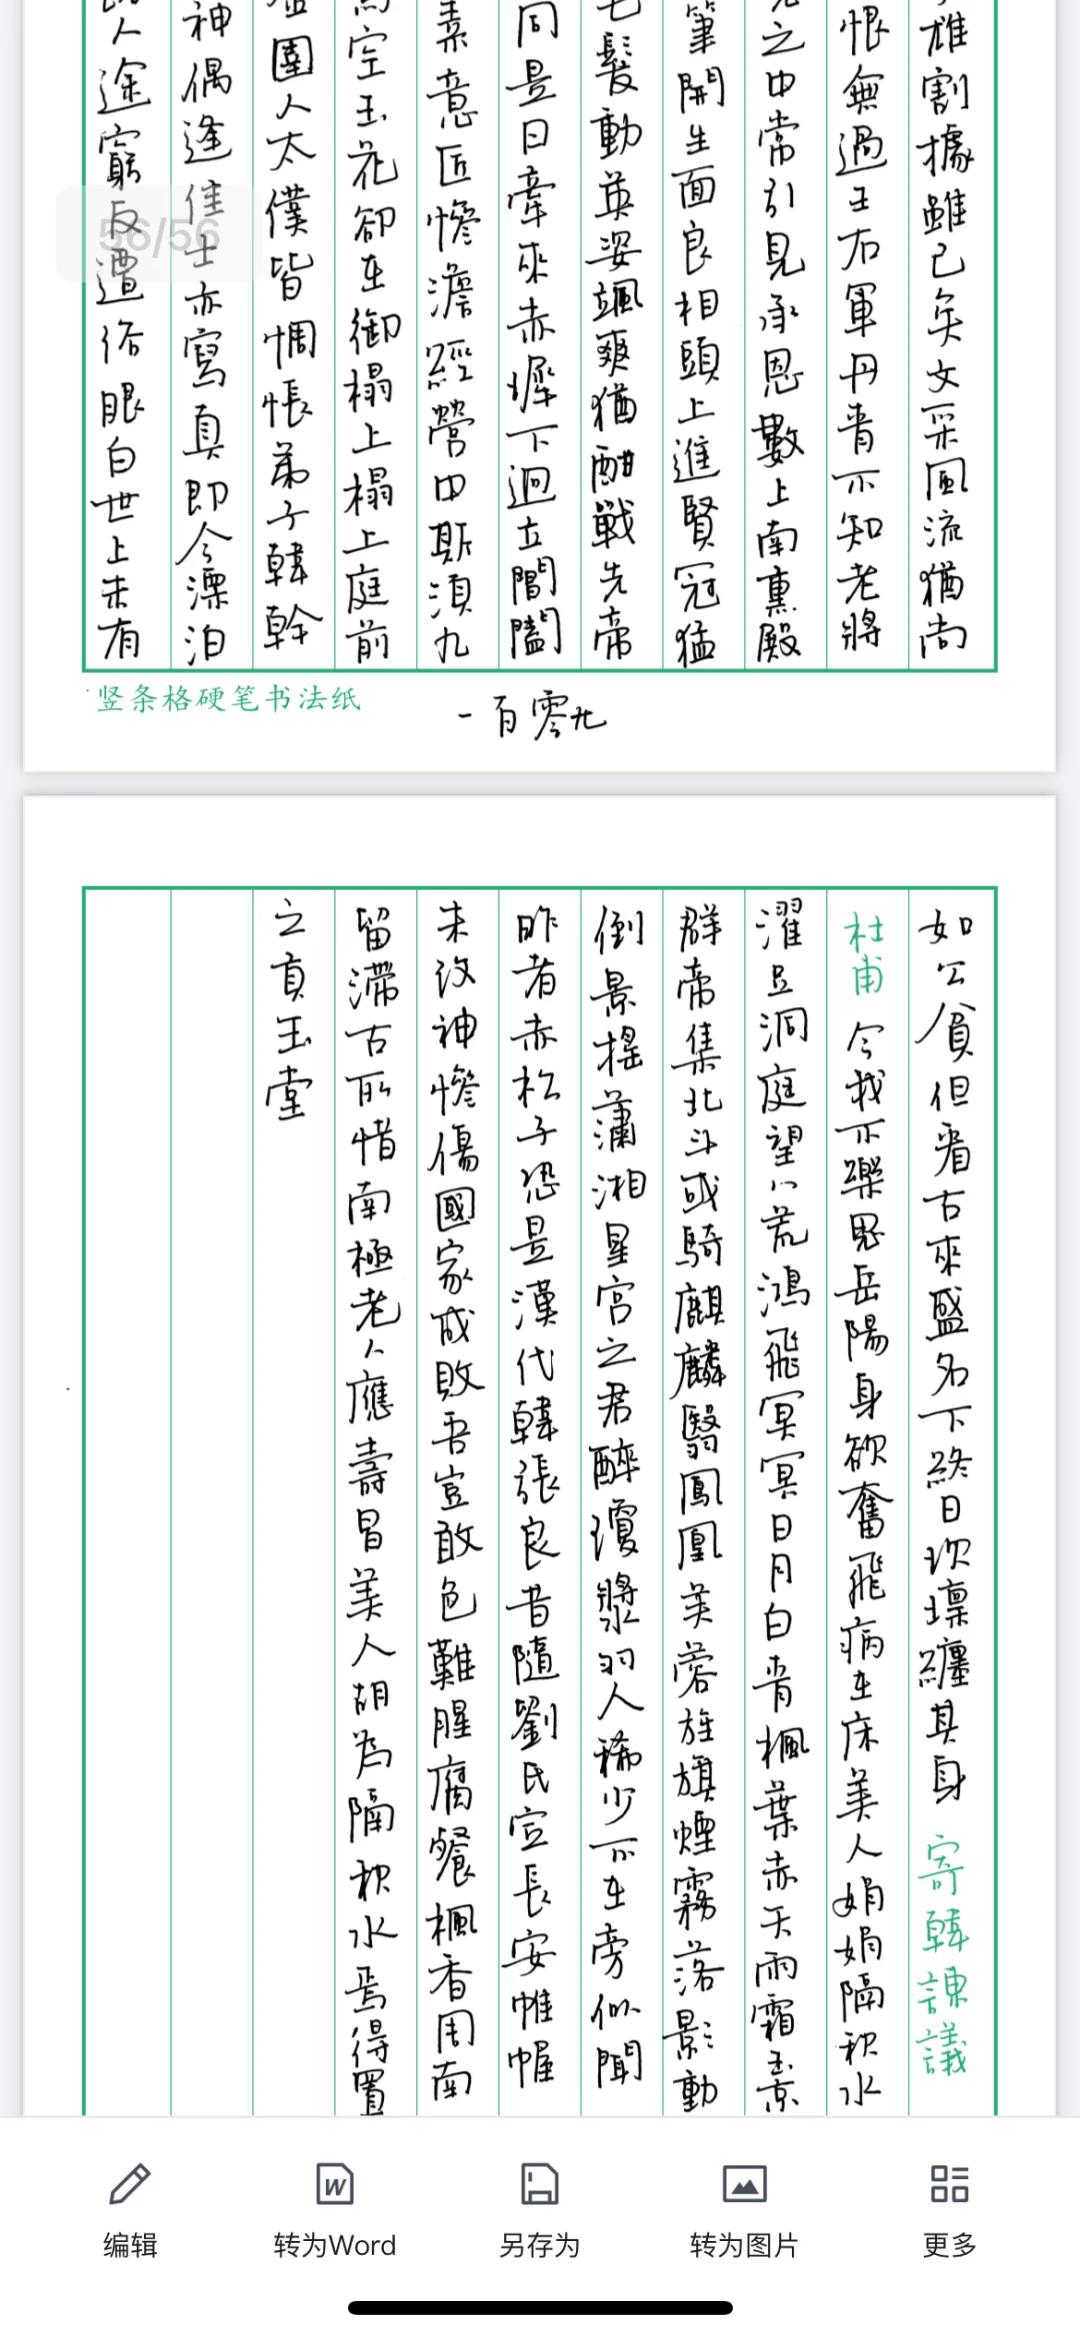 雄割據雖已矣文采風流猶尚
恨無過王右軍丹青不知老將
之中常引見承恩數上南熏殿
筆開生面良相頭上進賢冠猛
毛髮動英姿颯爽猶酣戰先帝
同是日牽來赤墀下迥立閶闔
素意匠慘澹經營中斯須九
空玉花卻在御榻上榻上庭前
圉人太僕皆惆悵弟子韓幹
神偶逢佳士亦寫真即今漂泊
人途窮反遭俗眼白世上未有
56/56
竖条格硬笔书法纸
一百零九
如公貧但看古來盛名下終日坎壈纏其身 寄韓諫議
杜甫 今我不樂思岳陽身欲奮飛病在床美人娟娟隔秋水
濯足洞庭望八荒鴻飛冥冥日月白青楓葉赤天雨霜玉京
群帝集北斗或騎麒麟翳鳳凰芙蓉旌旗煙霧落影動
倒景搖瀟湘星宮之君醉瓊漿羽人稀少不在旁似聞
昨者赤松子恐是漢代韓張良昔隨劉氏定長安帷幄
未改神慘傷國家成敗吾豈敢色難腥腐餐楓香周南
留滯古所惜南極老人應壽昌美人胡為隔秋水焉得置
之貢玉堂
编辑
转为Word
另存为
转为图片
更多